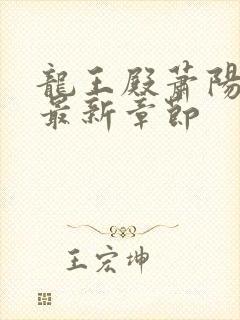 龍王殿蕭陽
最新章節
王宏坤